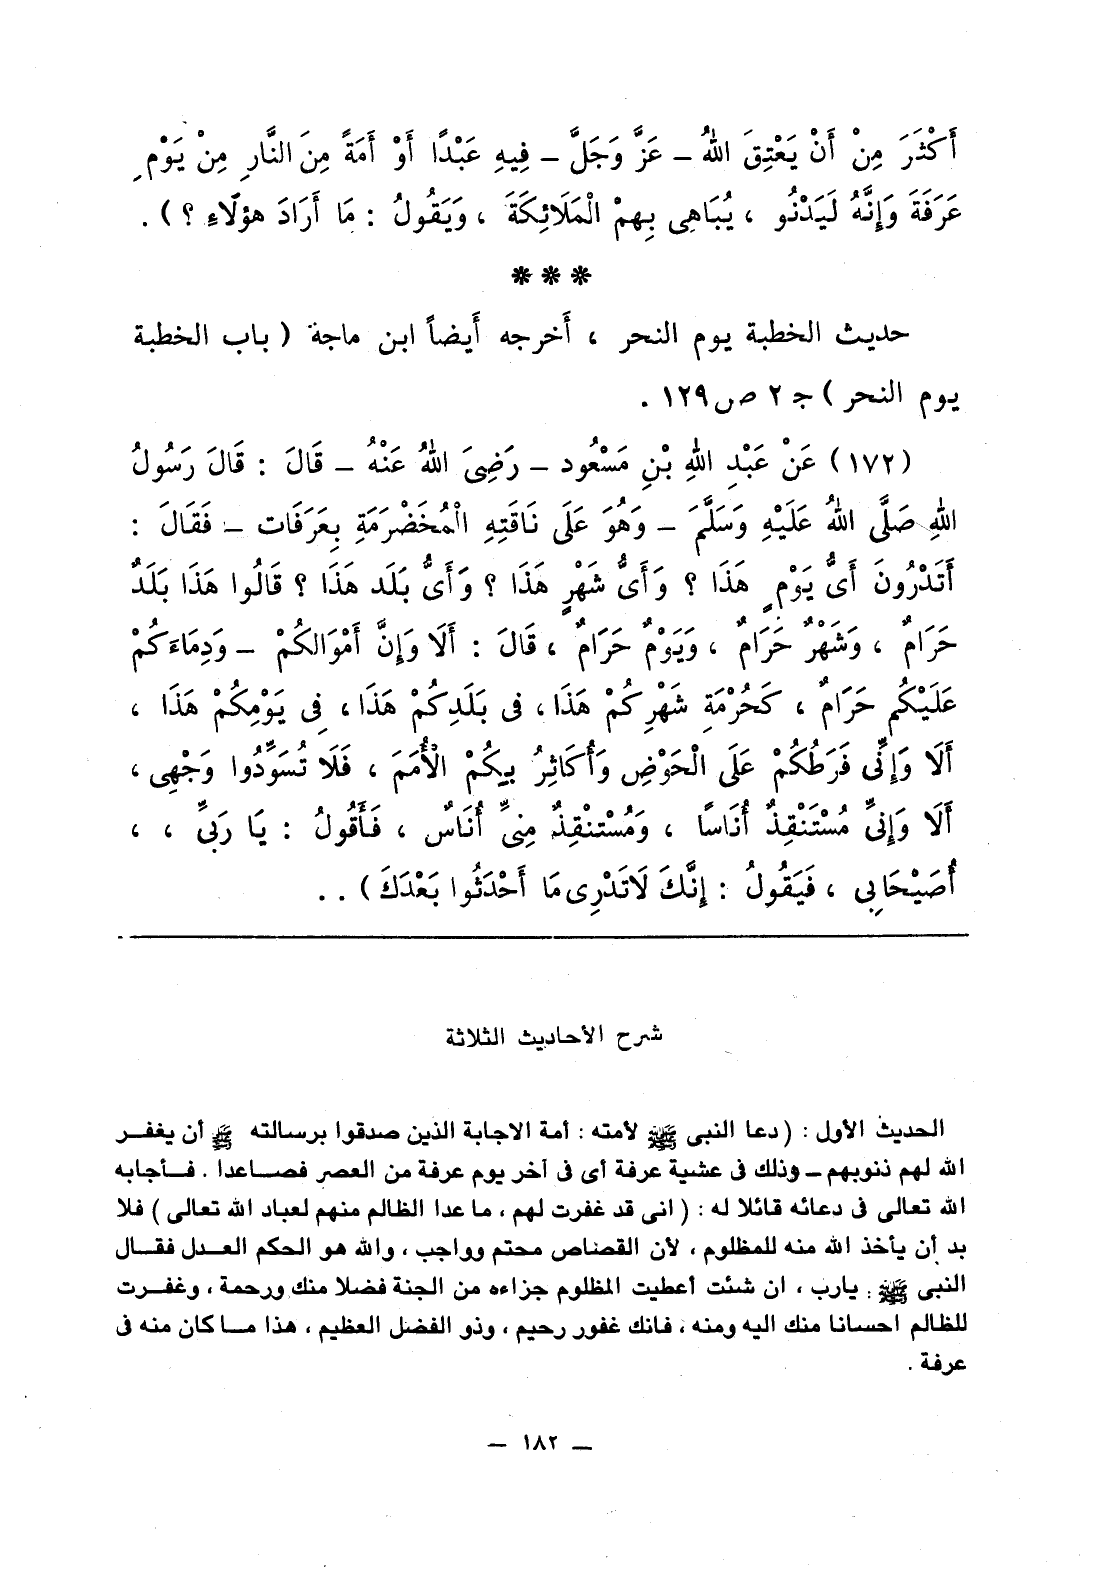 أَكْثَرَ مِنْ أَنْ يَعْتِقَ اللهُ – عَزَّ وَجَلَّ – فِيهِ عَبْدًا أَوْ أَمَةً مِنَ النَّارِ مِنْ يَوْمِ
عَرَفَةَ وَإِنَّهُ لَيَدْنُو ، يُبَاهِى بِهِمْ الْمَلَائِكَةَ ، وَيَقُولُ : مَا أَرَادَ هؤلَاءِ ؟ ) .
***
حديث الخطبة يوم النحر ، أَخرجه أَيضاً ابن ماجة ( باب الخطبة
يوم النحر ) جـ ٢ ص ١٢٩ .
(١٧٢) عَنْ عَبْدِ اللهِ بْنِ مَسْعُود – رَضِىَ اللهُ عَنْهُ – قَالَ : قَالَ رَسُولُ
اللهِ صَلَّى اللهُ عَلَيْهِ وَسَلَّمَ – وَهُوَ عَلَى نَاقَتِهِ الْمُخَضْرَمَةِ بِعَرَفَات – فَقَالَ :
أَتَدْرُونَ أَىُّ يَوْمٍ هَذَا ؟ وَأَىُّ شَهْرٍ هَذَا ؟ وَأَىُّ بَلَد هَذَا ؟ قَالُوا هَذَا بَلَدٌ
حَرَامٌ ، وَشَهْرٌ حَرَامٌ ، وَيَوْمٌ حَرَامٌ ، قَالَ : أَلَا وَإِنَّ أَمْوَالكُمْ – وَدِمَاءَكُمْ
عَلَيْكُم حَرَامٌ ، كَحُرْمَةِ شَهْرِكُمْ هَذَا ، فى بَلَدِكُمْ هَذَا ، فِى يَوْمِكُمْ هَذَا ،
أَلَا وَإِنِّى فَرَطُكُمْ عَلَى الْحَوْضِ وَأُكَاثِرُ بِيكُمْ الْأُمَمَ ، فَلَا تُسَوِّدُوا وَجْهِى ،
أَلَا وَإِنىِّ مُسْتَنْقِذٌ أُنَاسًا ، وَمُسْتَنْقِذٌ مِنىِّ أُنَاسٌ ، فَأَقُولُ : يَا رَبىِّ ، ،
أُصَيْحَابِى ، فَيَقُولُ : إِنَّكَ لَاتَدْرِى مَا أَحْدَثُوا بَعْدَكَ ) . .
شرح الأحاديث الثلاثة
الحديث الأول : ( دعا النبى ﷺ لأمته : أمة الاجابة الذين صدقوا برسالته ﷺ أن يغفر
الله لهم ذنوبهم – وذلك فى عشية عرفة أى فى آخر يوم عرفة من العصر فصاعدا . فأجابه
الله تعالى فى دعائه قائلا له : ( انى قد غفرت لهم ، ما عدا الظالم منهم لعباد الله تعالى ) فلا
بد أن يأخذ الله منه للمظلوم ، لأن القصاص محتم وواجب ، والله هو الحكم العدل فقال
النبى ﷺ : يارب ، ان شئت أعطيت المظلوم جزاءه من الجنة فضلا منك ورحمة ، وغفرت
للظالم احسانا منك اليه ومنه ، فانك غفور رحيم ، وذو الفضل العظيم ، هذا ما كان منه فى
عرفة .
– ١٨٢ –